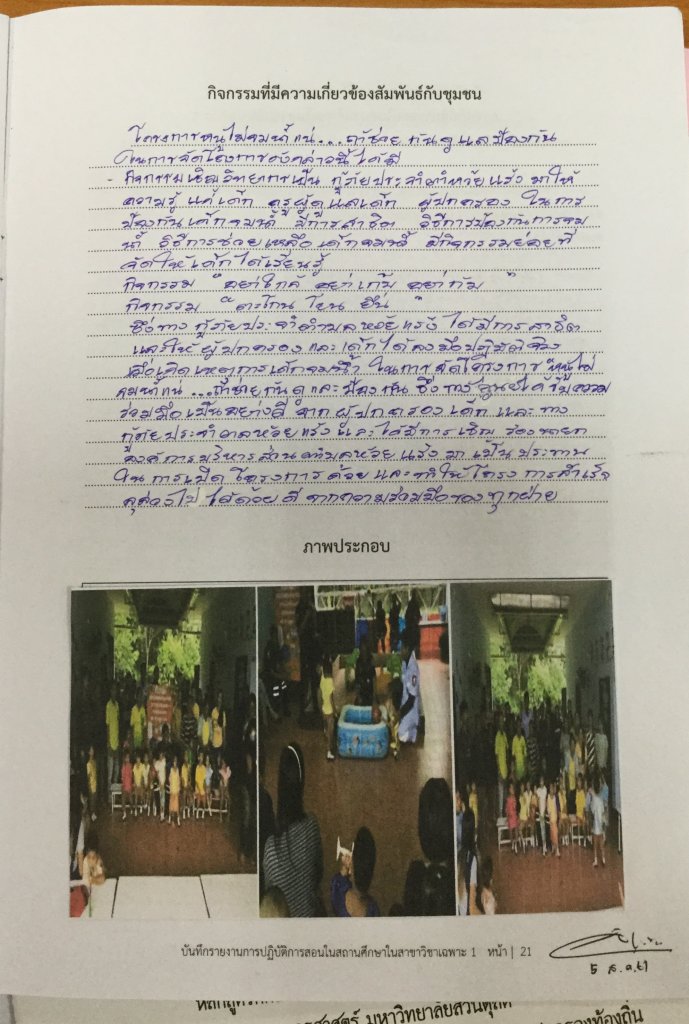 กิจกรรมที่มีความเกี่ยวข้องสัมพันธ์กับชุมชน
โครงการหนูไม่จมน้ำแน่...ถ้าช่วยกันดูแลป้องกัน
ในการจัดโครงการดังกล่าวนี้ได้มี
- กิจกรรมเชิญวิทยากรเป็น กู้ภัยประจำตำบลห้วยแร้ง มาให้
ความรู้ แก่เด็ก ครูผู้ดูแลเด็ก ผู้ปกครอง ในการ
ป้องกันเด็กจมน้ำ มีการสาธิต วิธีการป้องกันการจม
น้ำ วิธีการช่วยเหลือเด็กจมน้ำ มีกิจกรรมย่อยที่
จัดให้เด็กได้เรียนรู้
กิจกรรม "อย่าใกล้ อย่าเก็บ อย่าก้ม"
กิจกรรม "ตะโกน โยน ยื่น"
ซึ่งทาง กู้ภัยประจำตำบลห้วยแร้ง ได้มีการสาธิต
และให้ผู้ปกครองและเด็กได้ลงมือปฏิบัติจริง
เมื่อเกิดเหตุการเด็กจมน้ำ ในการจัดโครงการ "หนูไม่
จมน้ำแน่...ถ้าช่วยกันดูและป้องกัน ซึ่งทางศูนย์ได้รับความ
ร่วมมือเป็นอย่างดี จากผู้ปกครองเด็ก และ ทาง
กู้ภัยประจำตำบลห้วยแร้ง และได้มีการเชิญ รองนายก
องค์การบริหารส่วนตำบลห้วยแร้ง มาเป็นประธาน
ในการเปิดโครงการด้วย และทำให้โครงการสำเร็จ
ลุล่วงไปได้ด้วยดี จากความร่วมมือของทุกฝ่าย
ภาพประกอบ
บันทึกรายงานการปฏิบัติการสอนในสถานศึกษาในสาขาวิชาเฉพาะ 1 หน้า | 21
5 ส.ค. 61
มหาวิทยาลัยสวนดุสิต